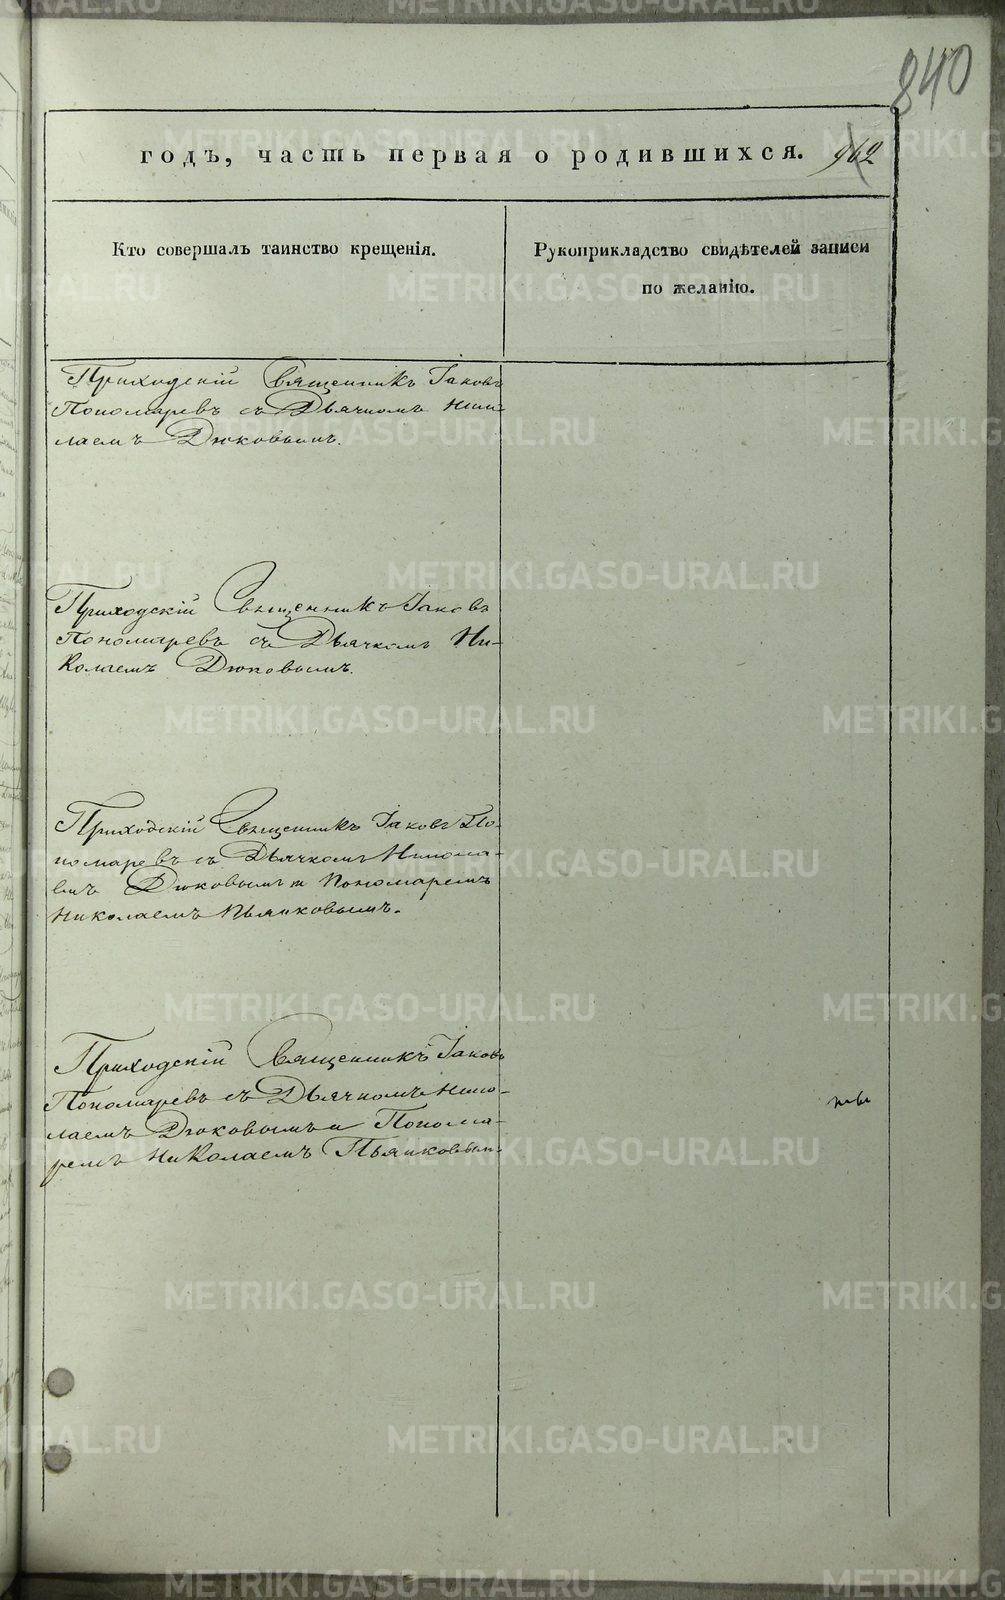 840
годъ, часть первая о родившихся. 962
Кто совершалъ таинство крещенія.
Рукоприкладство свидѣтелей записи
по желанію.
Приходскій Священникъ Іаковъ
Пономаревъ съ Дьячкомъ Нико-
лаемъ Дюковымъ.
Приходскій Священникъ Іаковъ
Пономаревъ съ Дьячкомъ Ни-
колаемъ Дюковымъ.
Приходскій Священникъ Іаковъ По-
номаревъ съ Дьячкомъ Никола-
емъ Дюковымъ и Пономаремъ
Николаемъ Пьянковымъ.
Приходскій Священникъ Іаковъ
Пономаревъ съ Дьячкомъ Нико-
лаемъ Дюковымъ и Понома-
ремъ Николаемъ Пьянковым
METRIKI.GASO-URAL.RU